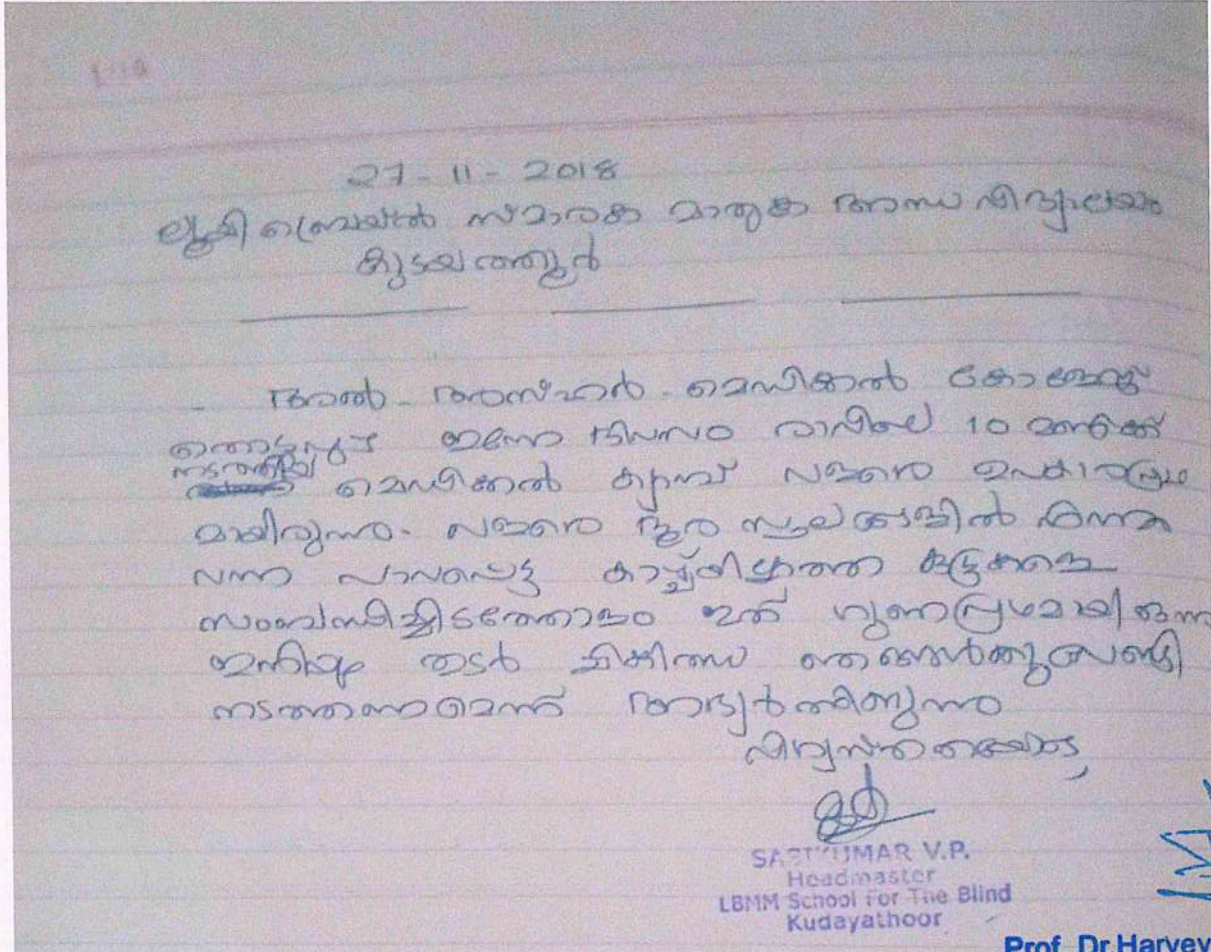 27-11-2018
ലൂയി ബ്രെയിൽ സ്മാരക മാതൃക അന്ധ വിദ്യാലയം
കുടയത്തൂർ
അൽ-അസ്ഹർ-മെഡിക്കൽ കോളേജ്
തൊടുപുഴ ഇന്നേ ദിവസം രാവിലെ 10 മണിക്ക്
നടത്തിയ മെഡിക്കൽ ക്യാമ്പ് വളരെ ഉപകാരപ്രദ
മായിരുന്നു. വളരെ ദൂര സ്ഥലങ്ങളിൽ നിന്നു
വന്ന പാവപ്പെട്ട കാഴ്ചയില്ലാത്ത കുട്ടികളെ
സംബന്ധിച്ചിടത്തോളം ഇത് ഗുണപ്രദമായിരുന്നു
ഇനിയും തുടർ ചികിത്സ ഞങ്ങൾക്കുവേണ്ടി
നടത്തണമെന്ന് അഭ്യർത്ഥിക്കുന്നു
വിശ്വസ്തതയോടെ,
SASIKUMAR V.P.
Headmaster
LBMM School For The Blind
Kudayathoor
Prof. Dr. Harvey